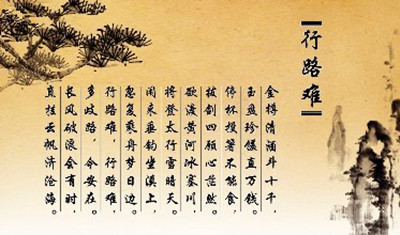 行路难
金樽清酒斗十千,
玉盘珍馐直万钱。
停杯投箸不能食,
拔剑四顾心茫然。
欲渡黄河冰塞川,
将登太行雪暗天。
闲来垂钓坐溪上,
忽复乘舟梦日边。
行路难,行路难,
多歧路,今安在
长风破浪会有时,
直挂云帆济沧海。